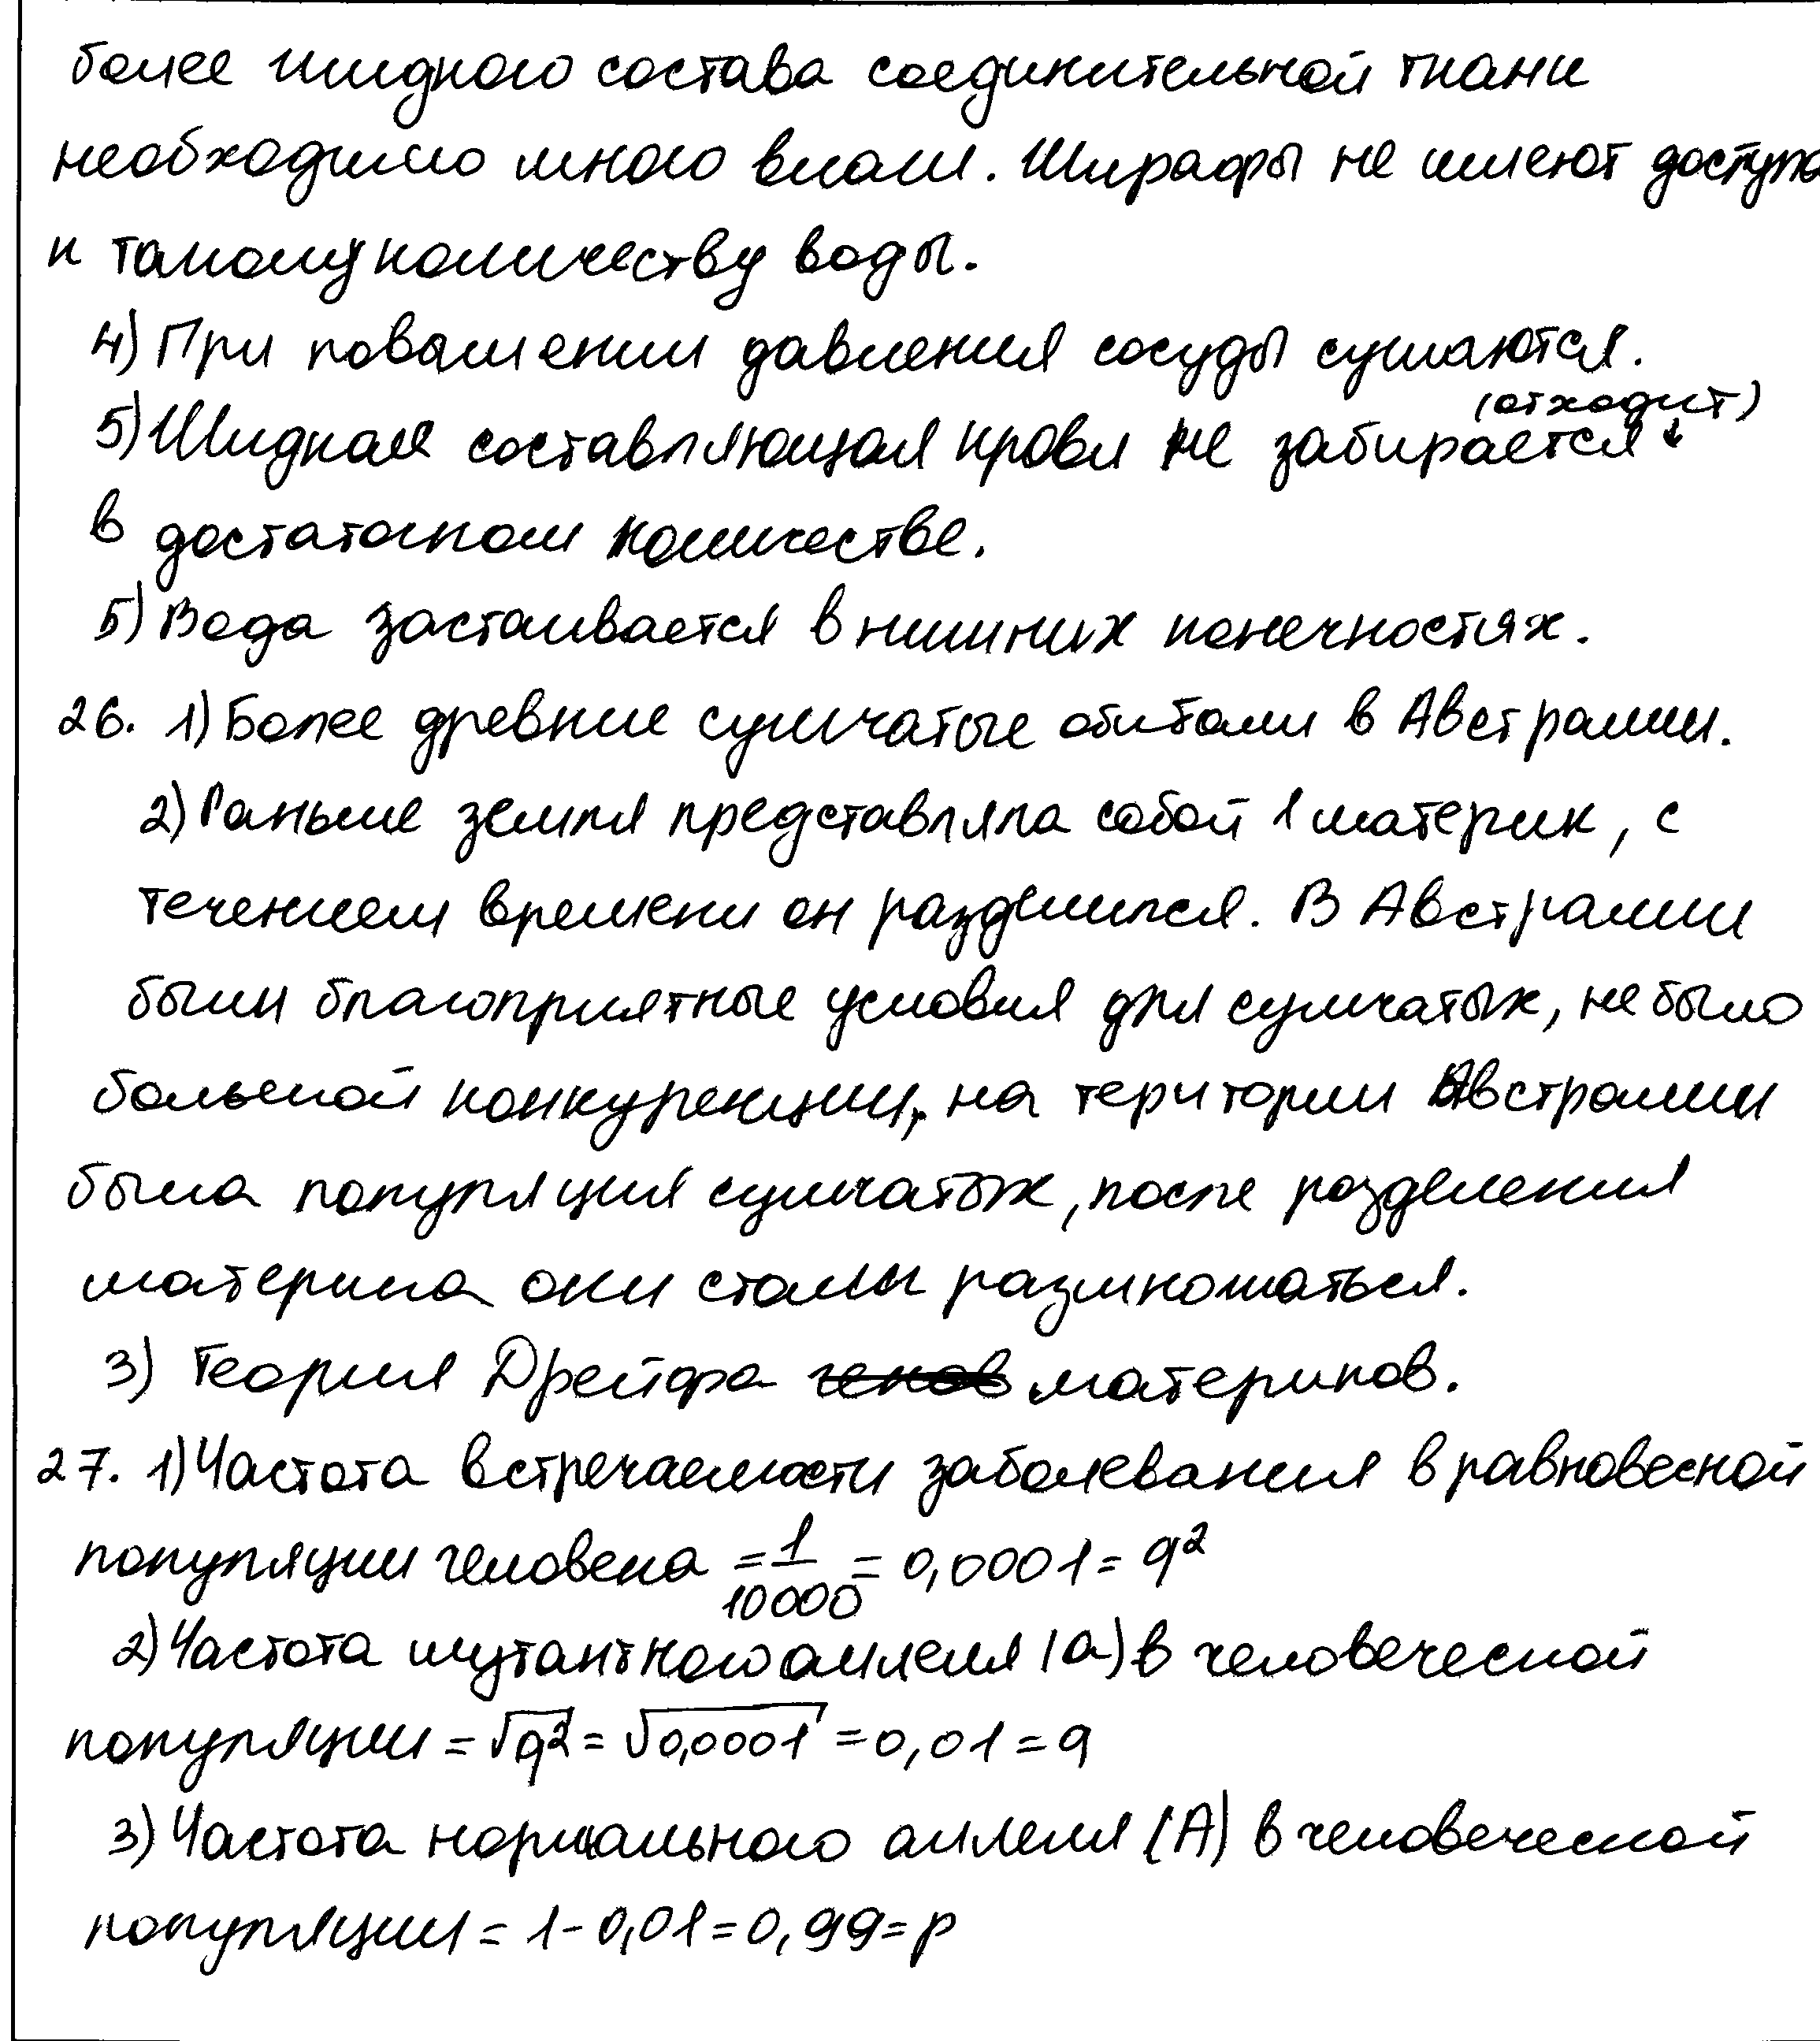 более жидкого состава соединительной ткани
необходимо много влаги. Жирафы не имеют доступа
к такому количеству воды.
4) При повышении давления сосуды сужаются.
(отходит)
5) Жидкая составляющая крови не забирается ↓
в достаточном количестве.
5) Вода застаивается в нижних конечностях.
26. 1) Более древние сумчатые обитали в Австралии.
2) Раньше земля представляла собой 1 материк, с
течением времени он разделился. В Австралии
были благоприятные условия для сумчатых, не было
большой конкуренции, на територии Австралии
была популяция сумчатых, после разделения
материка они стали размножаться.
3) Теория Дрейфа генов материков.
27. 1) Частота встречаемости заболевания в равновесной
популяции человека = 1/10000 = 0,0001 = q²
2) Частота мутантного аллеля (a) в человеческой
популяции = √q² = √0,0001 = 0,01 = q
3) Частота нормального аллеля (A) в человеческой
популяции = 1 - 0,01 = 0,99 = p